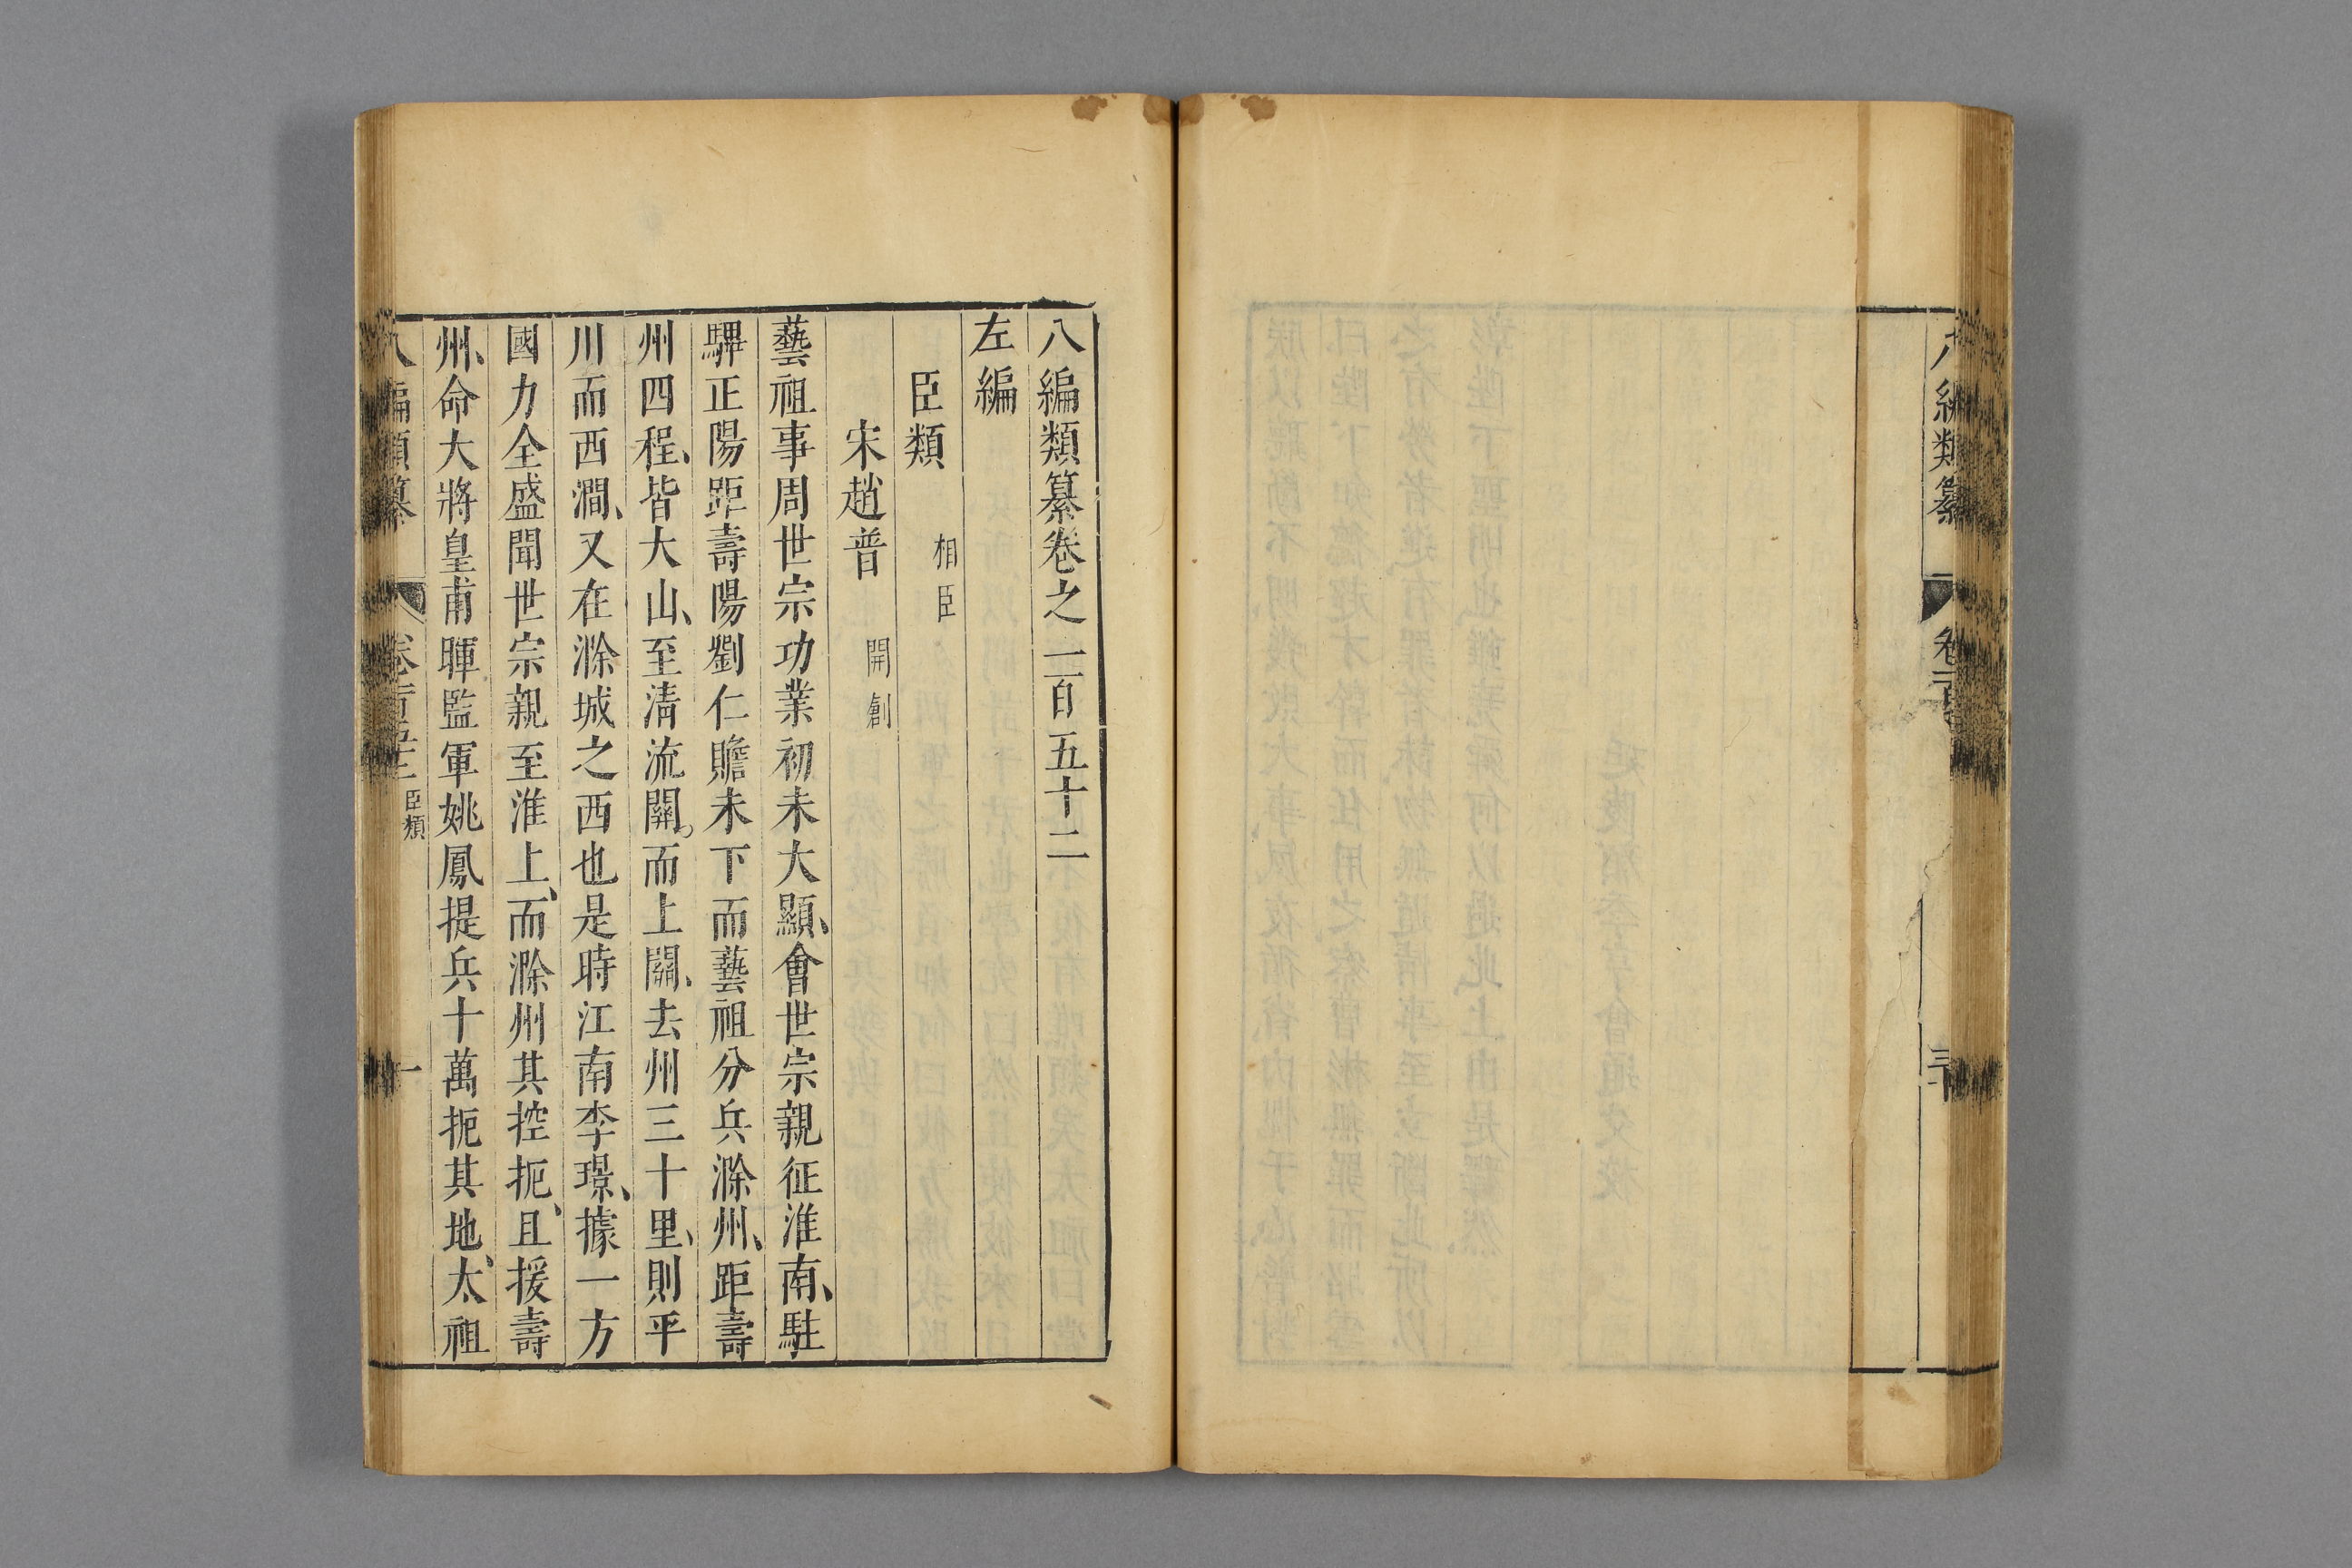 八編類纂
三十
八編類纂卷之一百五十二
左編
臣類 相臣
宋趙普 開創
藝祖事周世宗功業初未大顯、會世宗親征淮南、駐
驆正陽距壽陽劉仁贍未下而藝祖分兵滁州、距壽
州四程、皆大山、至清流關。而上關、去州三十里、則平
川而西澗、又在滁城之西也是時江南李璟、據一方
國力全盛聞世宗親至淮上、而滁州其控扼、且援壽
州、命大將皇甫暉監軍姚鳳提兵十萬扼其地、太祖
八編類纂 臣類 一